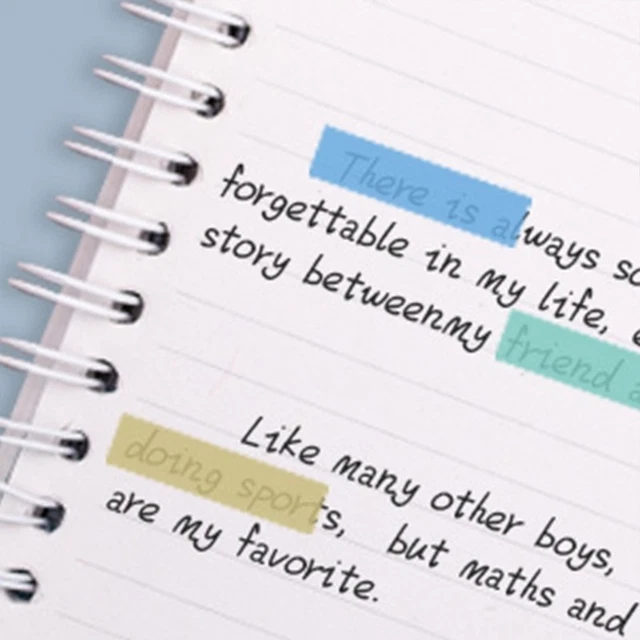 There is always so
forgettable in my life,
story betweenmy friend
Like many other boys,
doing sports, but maths and
are my favorite.